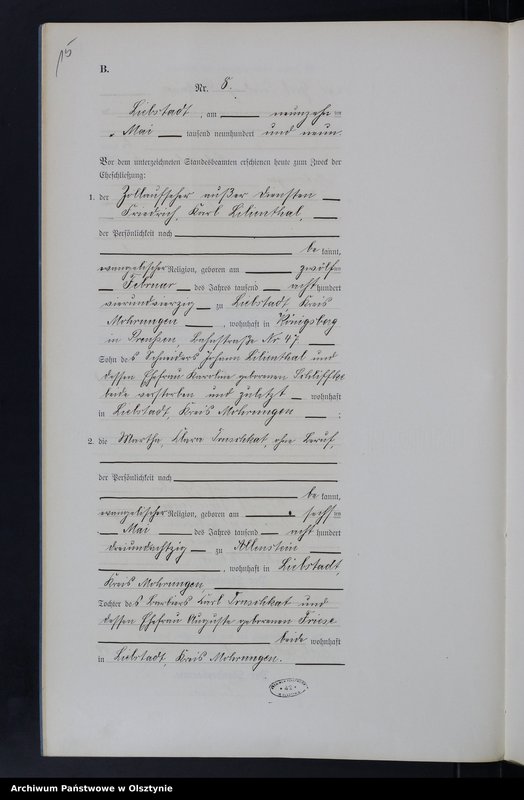 15
B.
Nr. 8.
Liebstadt, am neunzehn ten
Mai tausend neunhundert und neun.
Vor dem unterzeichneten Standesbeamten erschienen heute zum Zweck der
Eheschließung:
1. der Zollaufseher außer Diensten
Friedrich, Karl Lilienthal,
der Persönlichkeit nach
be kannt,
evangelischer Religion, geboren am zwölf ten
Februar des Jahres tausend acht hundert
vierundvierzig zu Liebstadt Kreis
Mohrungen, wohnhaft in Königsberg
in Preußen, Bahnstraße Nr. 47.
Sohn des Schneiders Johann Lilienthal und
dessen Ehefrau Karoline geborenen
beide verstorben und zuletzt wohnhaft
in Liebstadt, Kreis Mohrungen;
2. die Martha, Clara, ohne Beruf,
der Persönlichkeit nach
be kannt,
evangelischer Religion, geboren am sechs ten
Mai des Jahres tausend acht hundert
dreiundachtzig zu Allenstein
, wohnhaft in Liebstadt,
Kreis Mohrungen
Tochter des Barbiers Karl und
dessen Ehefrau Auguste geborenen Friese
beide wohnhaft
in Liebstadt, Kreis Mohrungen.
42
Archiwum Państwowe w Olsztynie